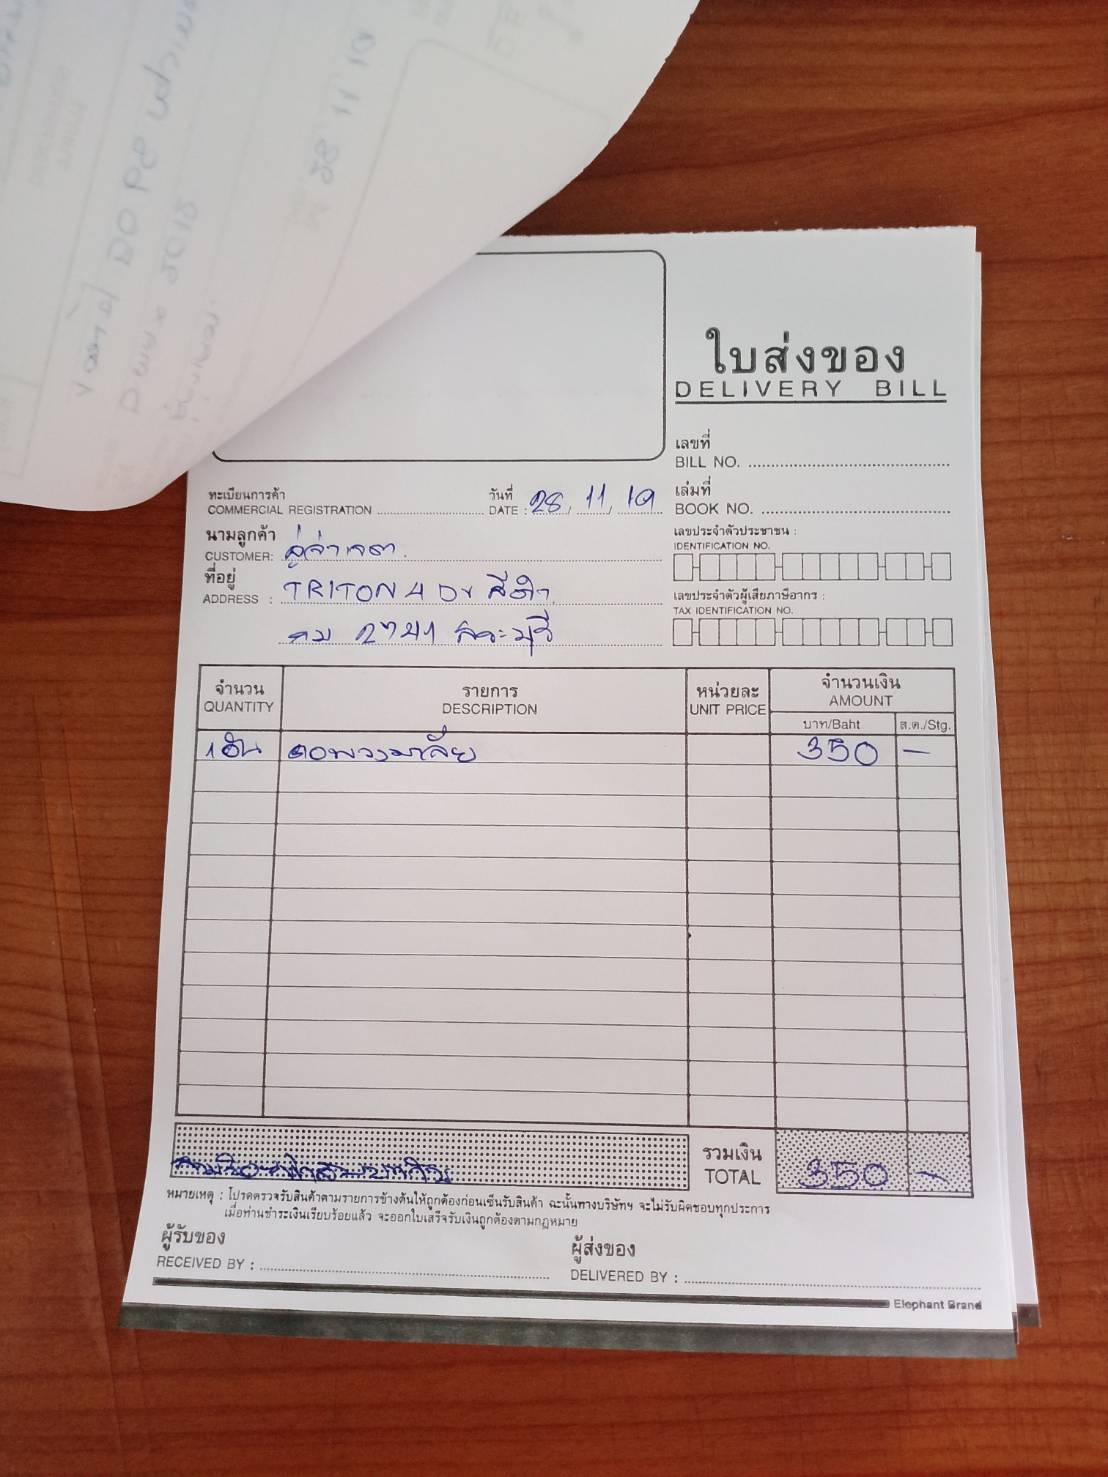 28 11 19
ใบส่งของ
DELIVERY BILL
เลขที่
BILL NO.
ทะเบียนการค้า
COMMERCIAL REGISTRATION
วันที่
DATE : 28, 11, 19
เล่มที่
BOOK NO.
นามลูกค้า
CUSTOMER:
เลขประจำตัวประชาชน :
IDENTIFICATION NO.
ที่อยู่
ADDRESS : TRITON 4 Dr สีดำ
สระบุรี
เลขประจำตัวผู้เสียภาษีอากร :
TAX IDENTIFICATION NO.
จำนวน รายการ หน่วยละ จำนวนเงิน
QUANTITY DESCRIPTION UNIT PRICE AMOUNT
บาท/Baht ส.ต./Stg.
1 อัน คอพวงมาลัย 350 -
รวมเงิน
TOTAL 350 -
สามร้อยห้าสิบบาทถ้วน
หมายเหตุ : โปรดตรวจรับสินค้าตามรายการข้างต้นให้ถูกต้องก่อนเซ็นรับสินค้า ฉะนั้นทางบริษัทฯ จะไม่รับผิดชอบทุกประการ
เมื่อท่านชำระเงินเรียบร้อยแล้ว จะออกใบเสร็จรับเงินถูกต้องตามกฎหมาย
ผู้รับของ
RECEIVED BY :
ผู้ส่งของ
DELIVERED BY :
Elephant Brand